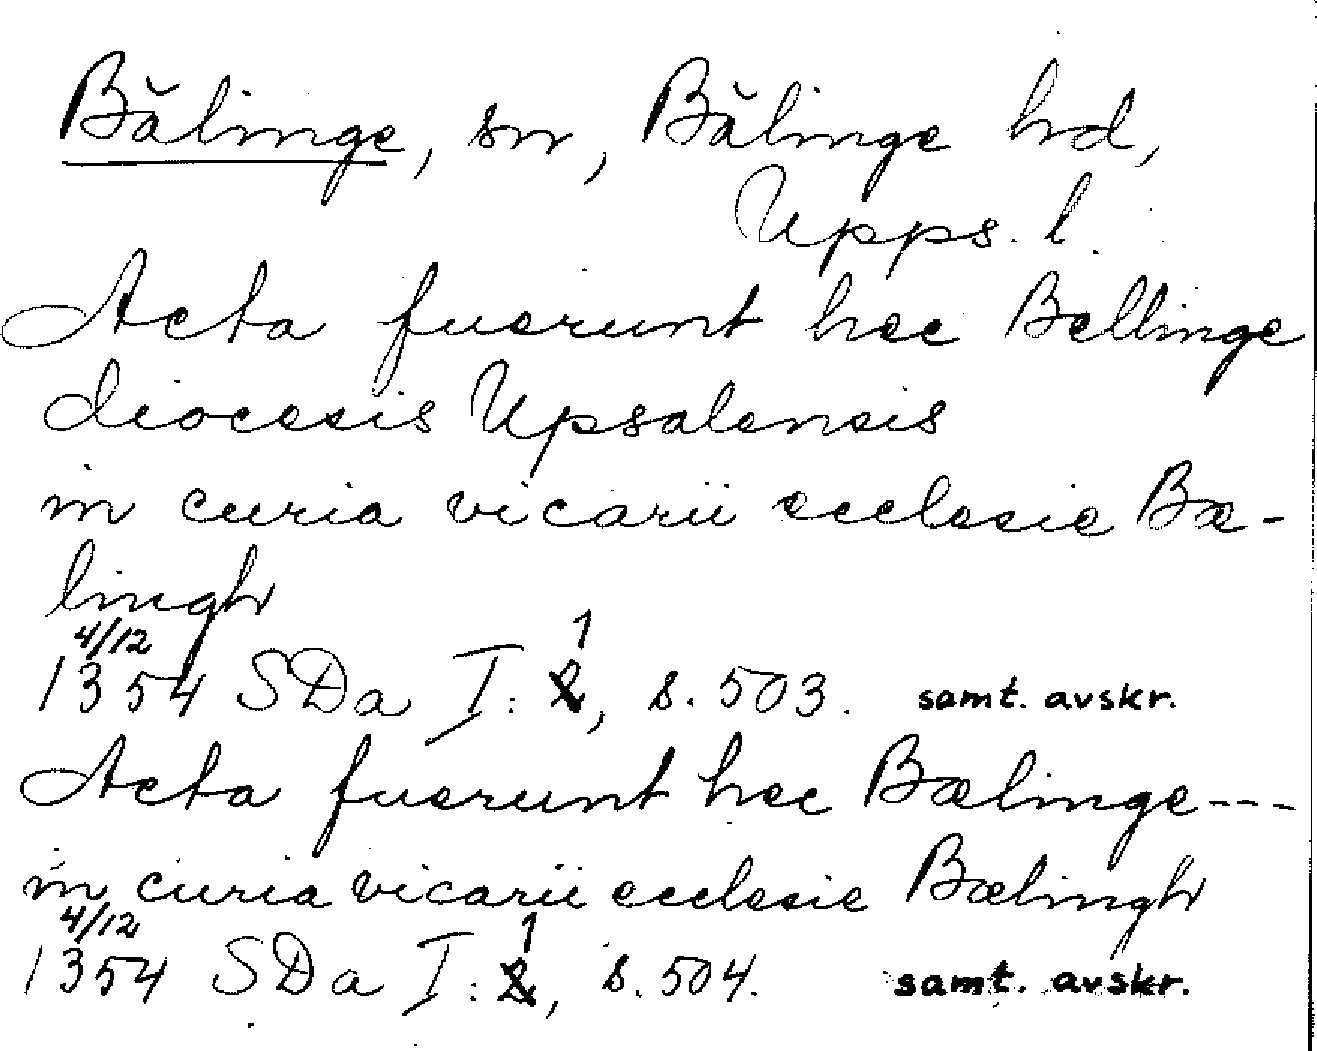 Bälinge, sn, Bälinge hd,
Upps. l.
Acta fuerunt hec Bellinge
diocesis Upsalensis
in curia vicarii ecclesie Bæ-
lingh
4/12 1
1354 SDa I: 2, s. 503. samt. avskr.
Acta fuerunt hec Bælinge---
in curia vicarii ecclesie Bælingh
4/12 1
1354 SDa I: 2, s. 504. samt. avskr.